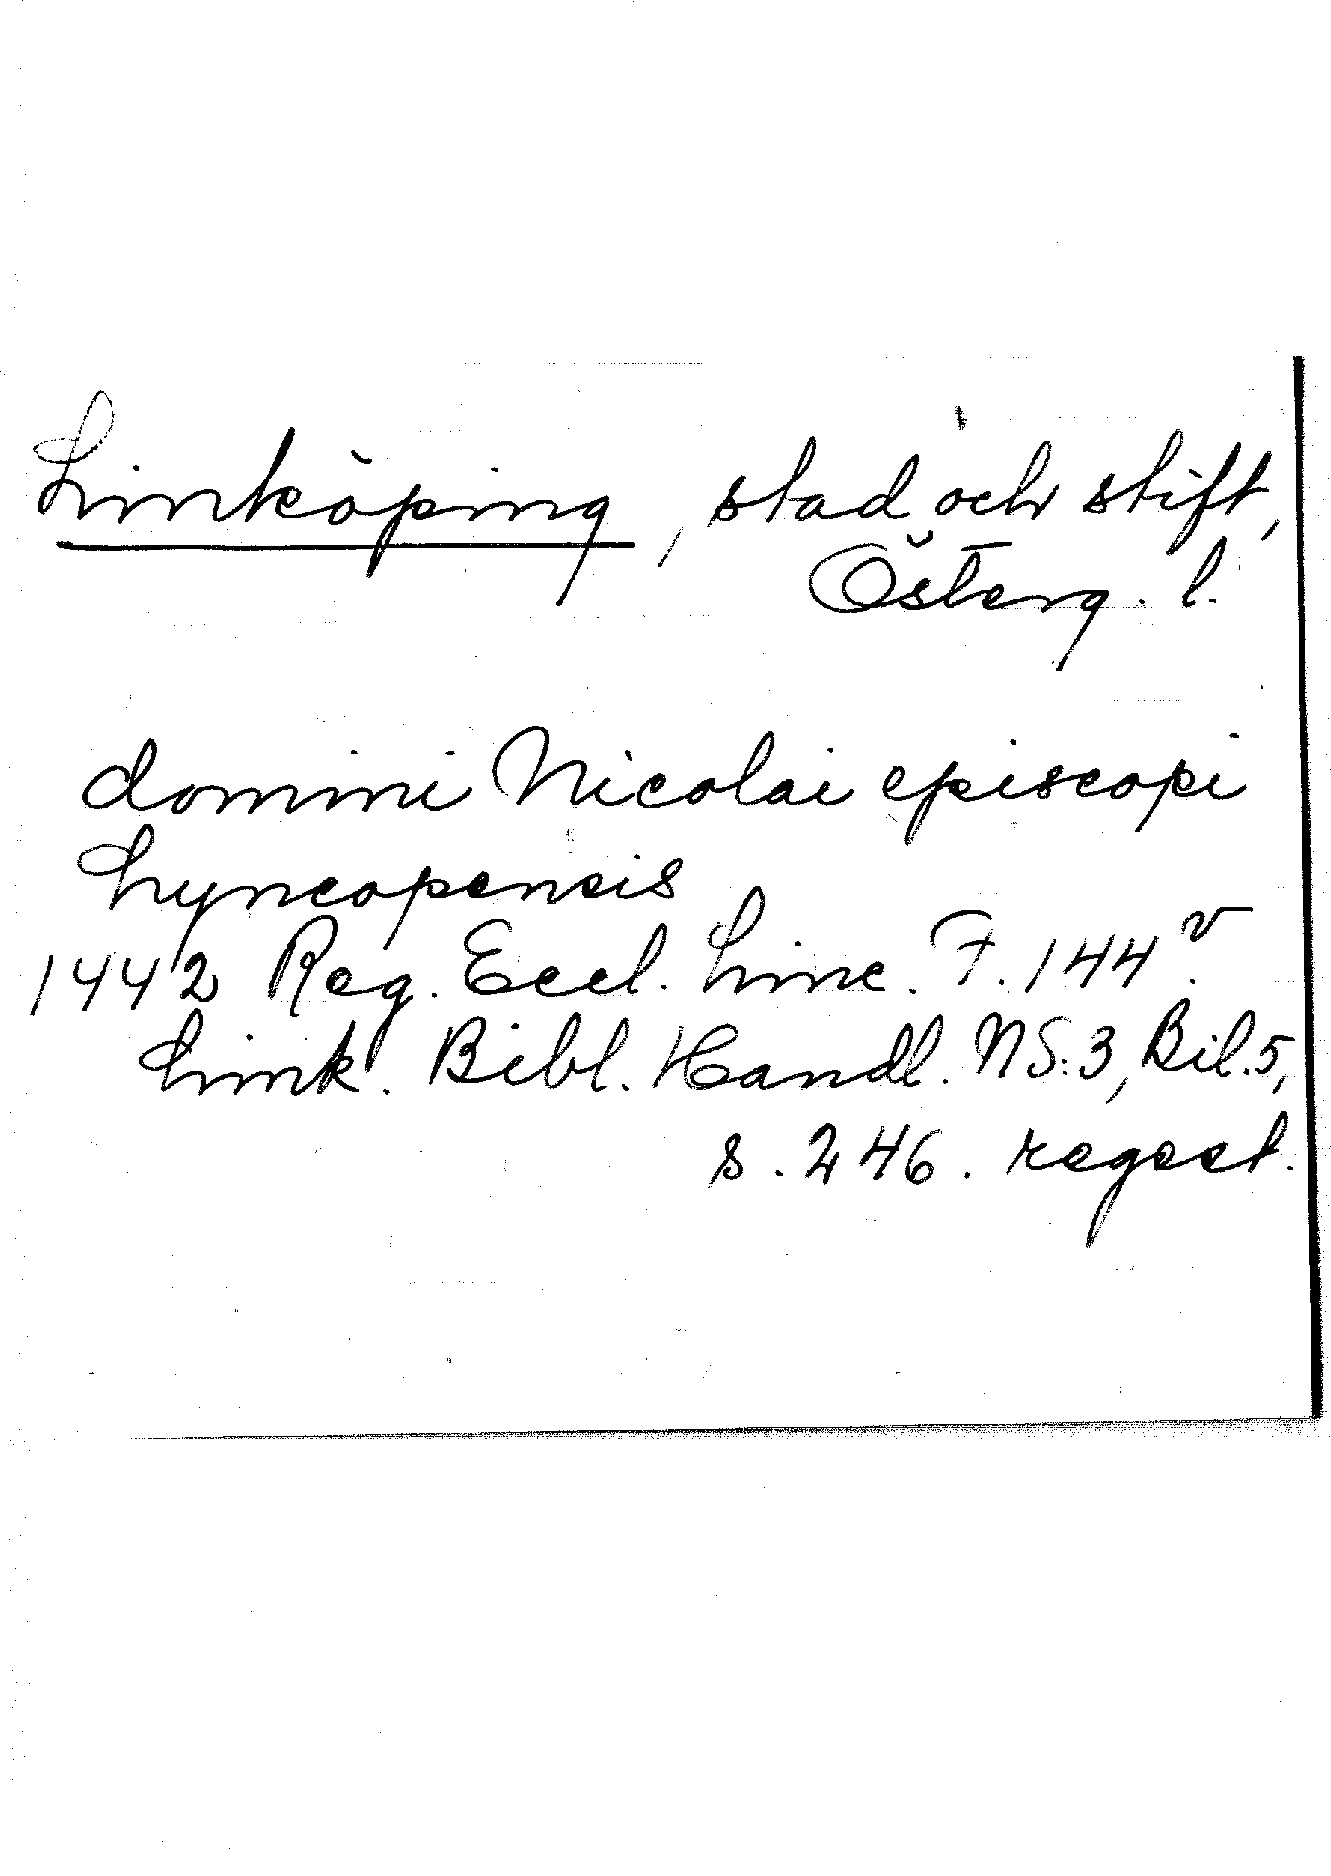 Linköping, stad och stift,
Österg. l.
domini Nicolai episcopi
Lyncopensis
1442 Reg. Eccl. Linc. F. 144v.
Link. Bibl. Handl. NS:3, Bil.5,
s. 246. regest.